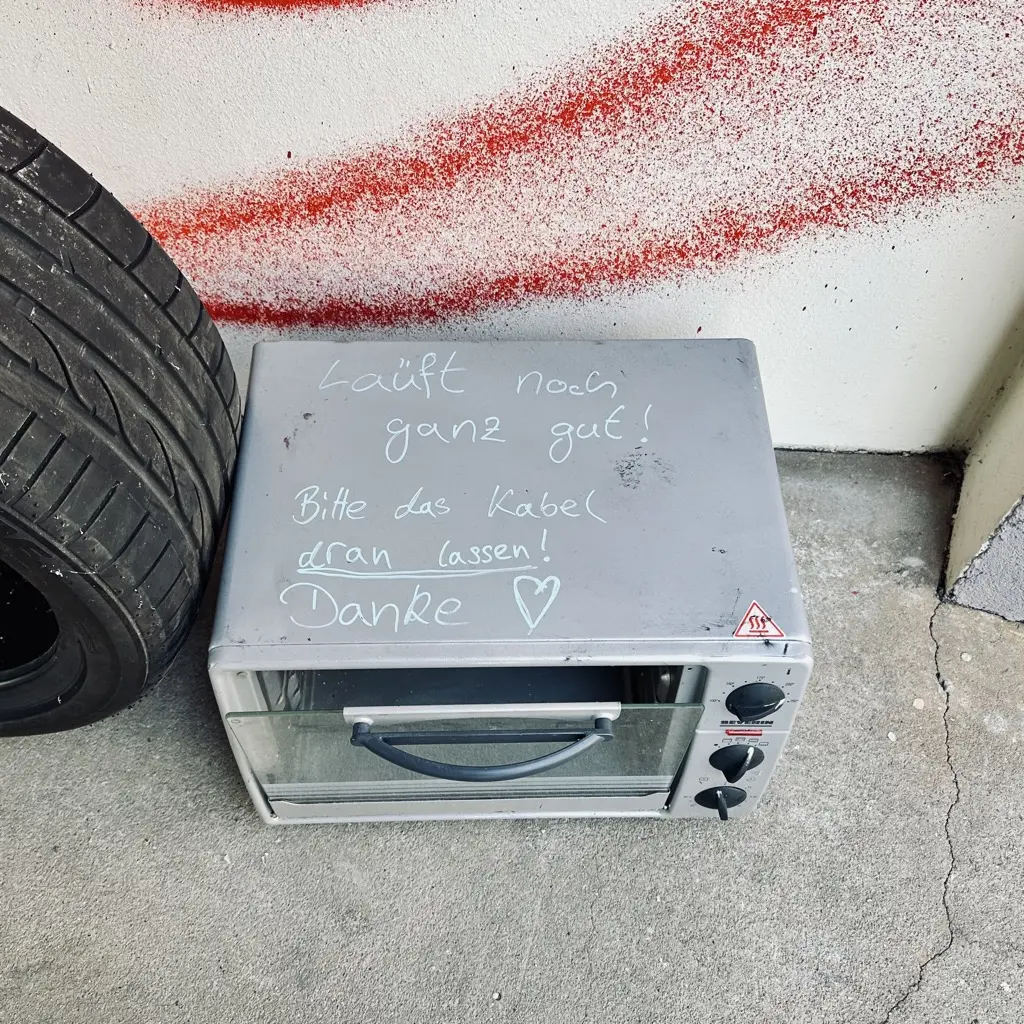 Laüft noch
ganz gut!
Bitte das Kabel
dran lassen!
Danke ♡
SEVERIN